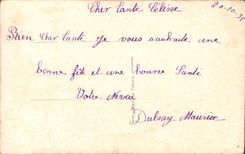 Cher tante Céline
20-10-38
Bien cher tante je vous souhaite une
bonne fête et une bonne santé
Votre neveu
Dulsay Maurice